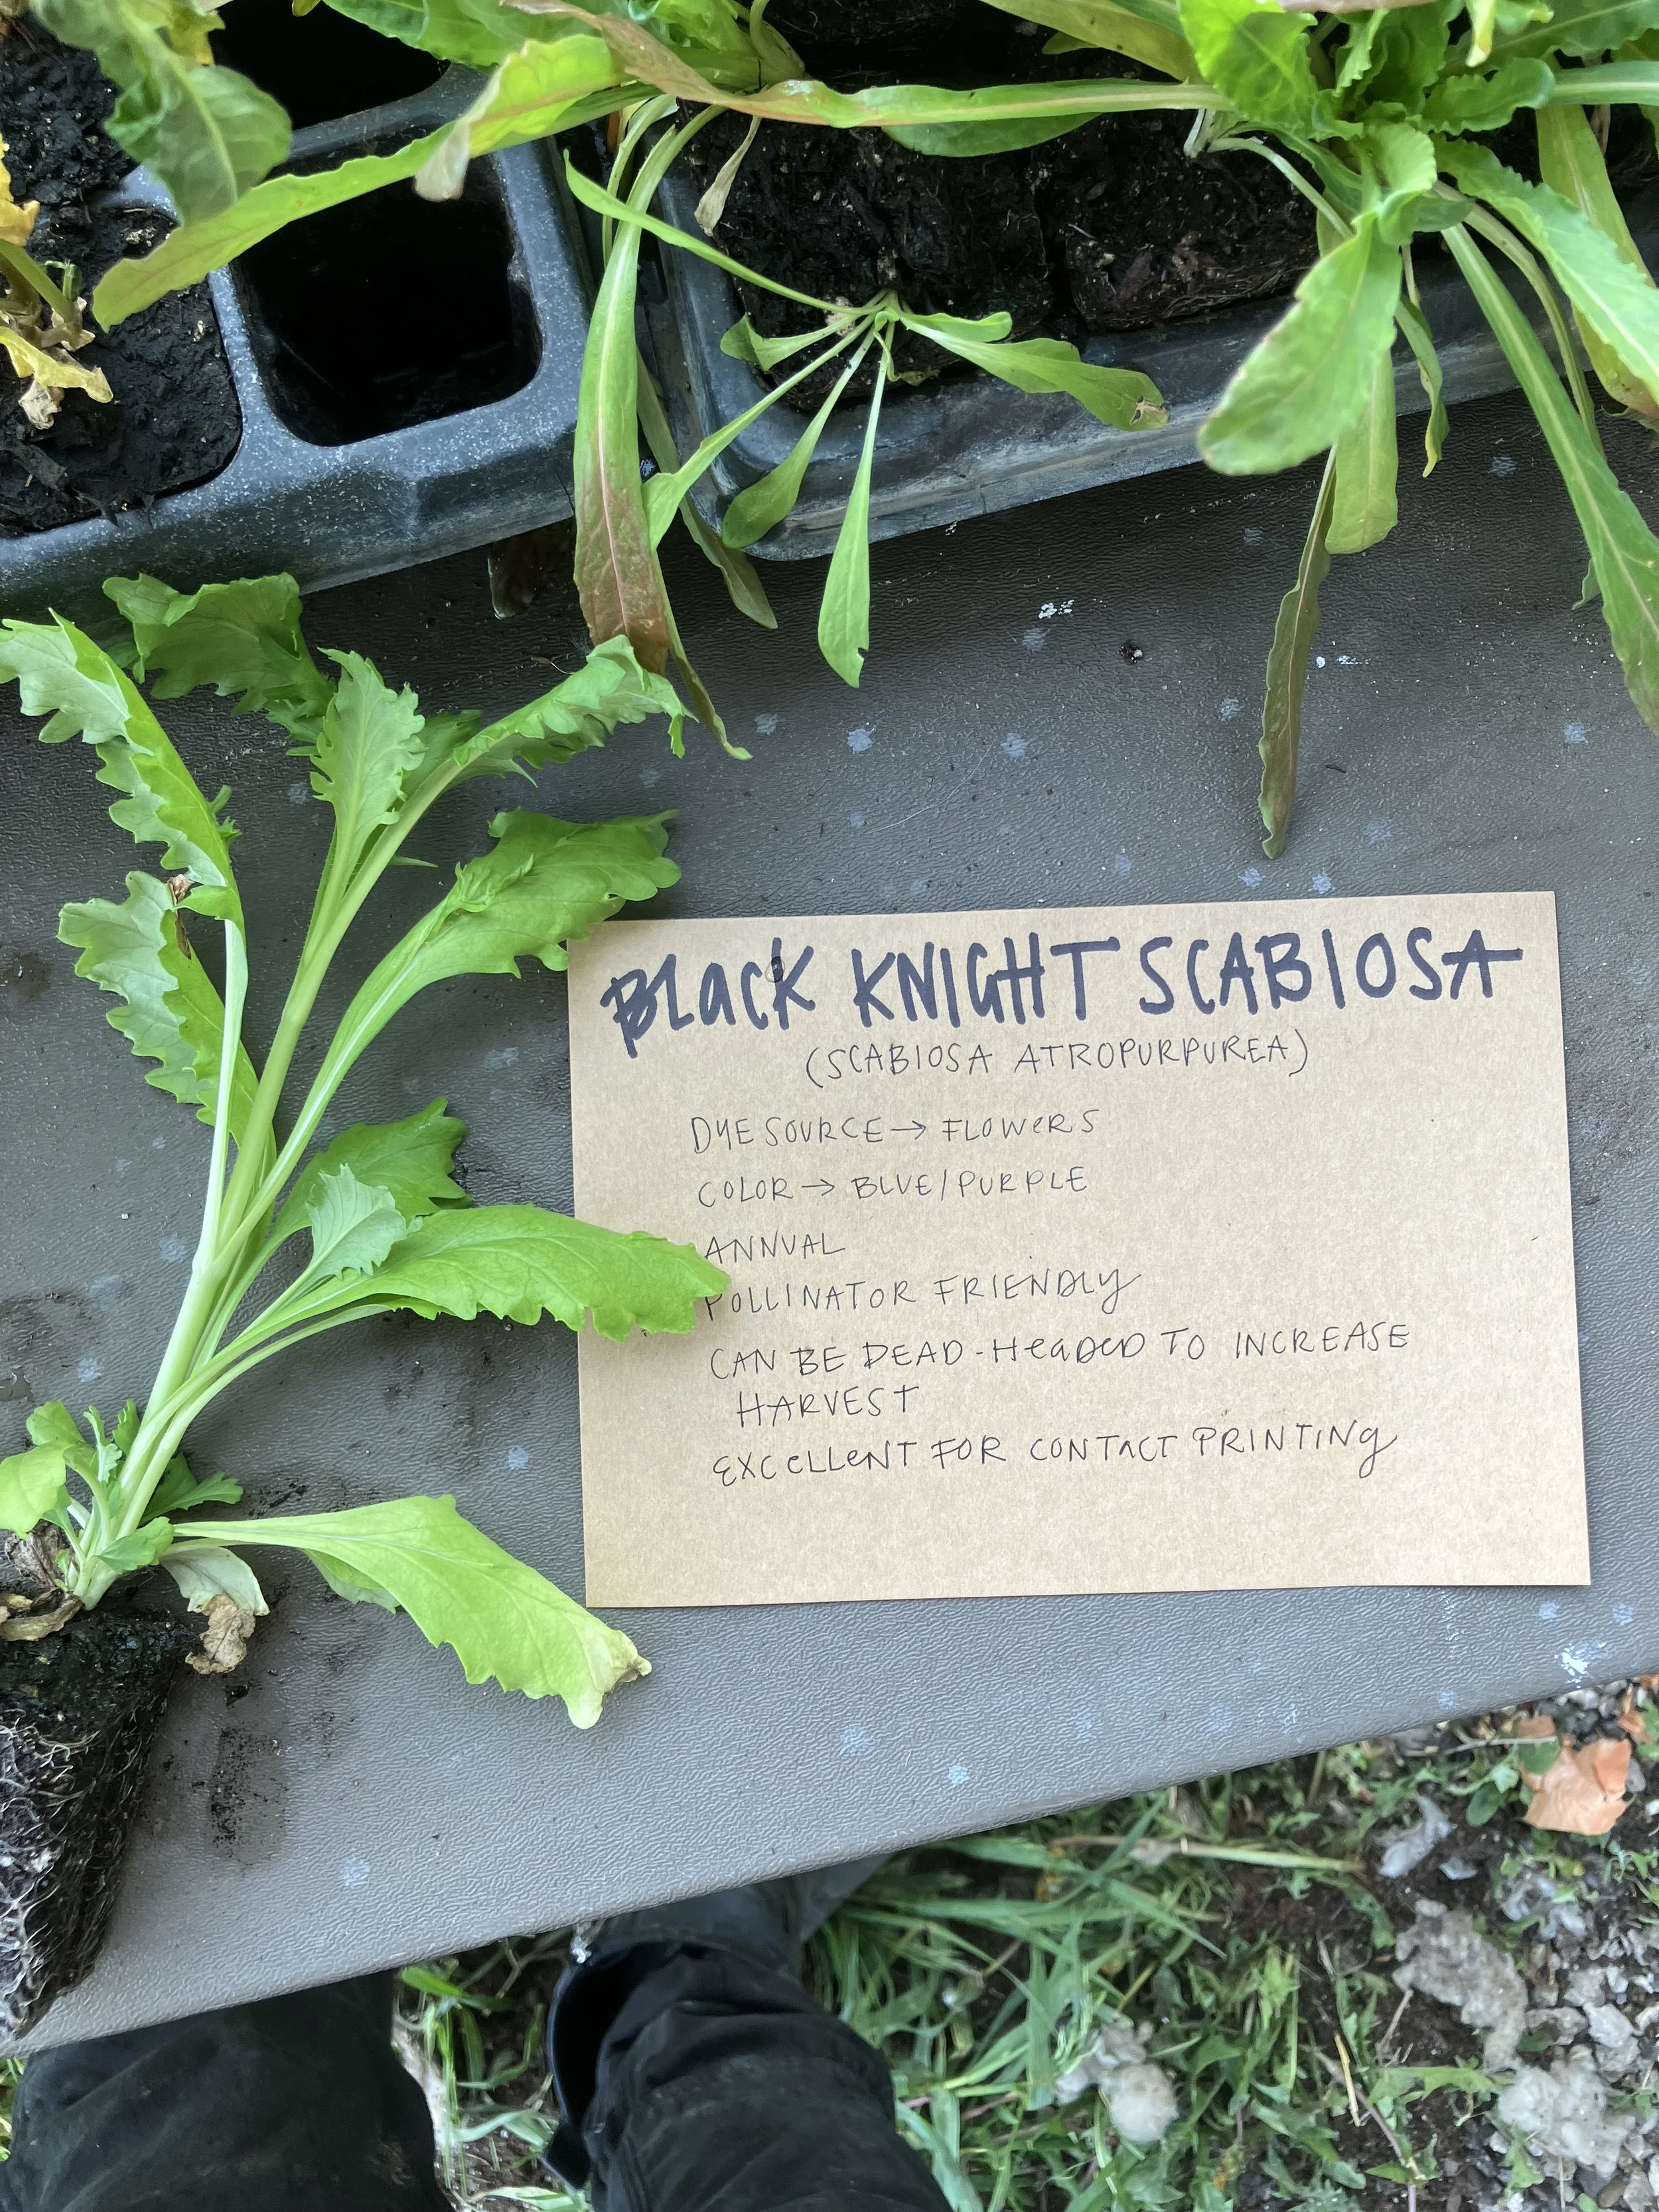 BLacK KNIGHT SCABIOSA
(SCABIOSA ATROPURPUREA)
DYE SOURCE → FLOWERS
COLOR → BLUE/PURPLE
ANNUAL
POLLINATOR FRIENDLY
CAN BE DEAD-HEADED TO INCREASE
HARVEST
EXCELLENT FOR CONTACT PRINTING